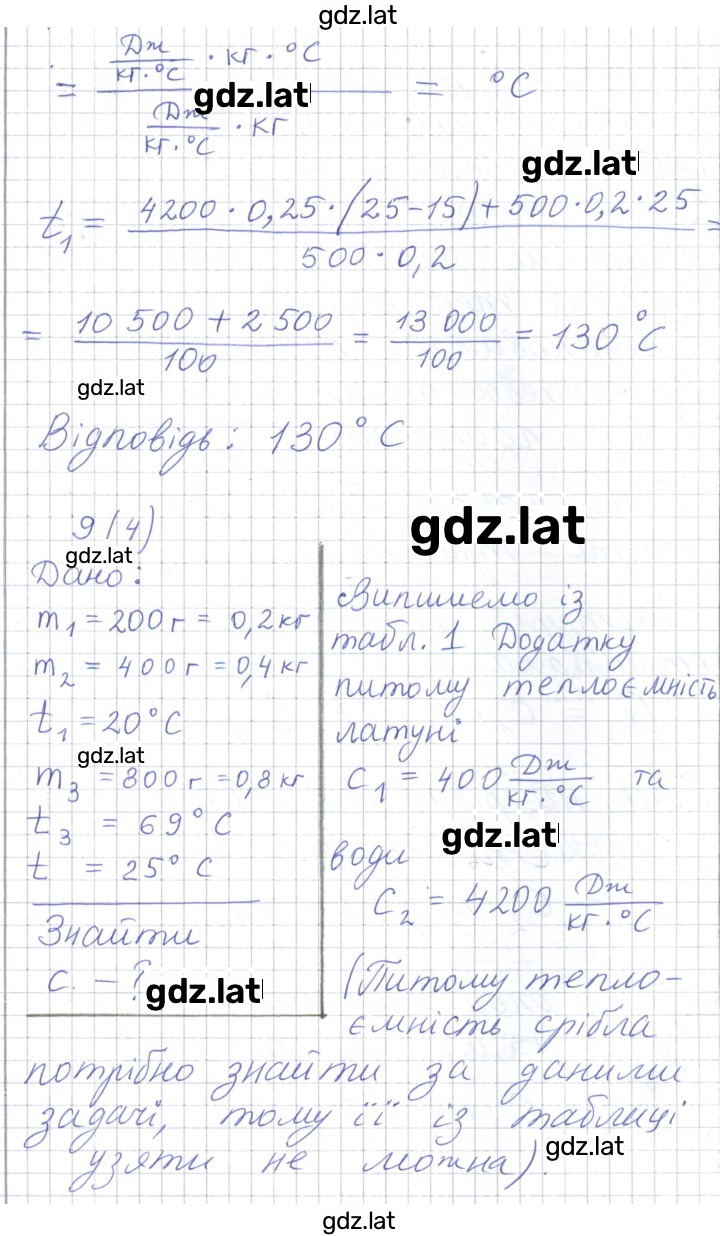 gdz.lat
= (Дж/(кг·°С) · кг · °С) / (Дж/(кг·°С) · кг) = °С
gdz.lat
gdz.lat
t₁ = (4200 · 0,25 · (25-15) + 500 · 0,2 · 25) / (500 · 0,2) =
= (10 500 + 2 500) / 100 = 13 000 / 100 = 130 °С
gdz.lat
Відповідь: 130 °С
9 (4)
gdz.lat
gdz.lat
Дано:
m₁ = 200 г = 0,2 кг
m₂ = 400 г = 0,4 кг
t₁ = 20 °С
gdz.lat
m₃ = 800 г = 0,8 кг
t₃ = 69 °С
t = 25 °С
Знайти
с. – ?
gdz.lat
Випишемо із
табл. 1 Додатку
питому теплоємність
латуні
с₁ = 400 Дж/(кг·°С) та
gdz.lat
води
с₂ = 4200 Дж/(кг·°С)
(Питому тепло-
ємність срібла
потрібно знайти за даними
задачі, тому її із таблиці
узяти не можна).
gdz.lat
gdz.lat